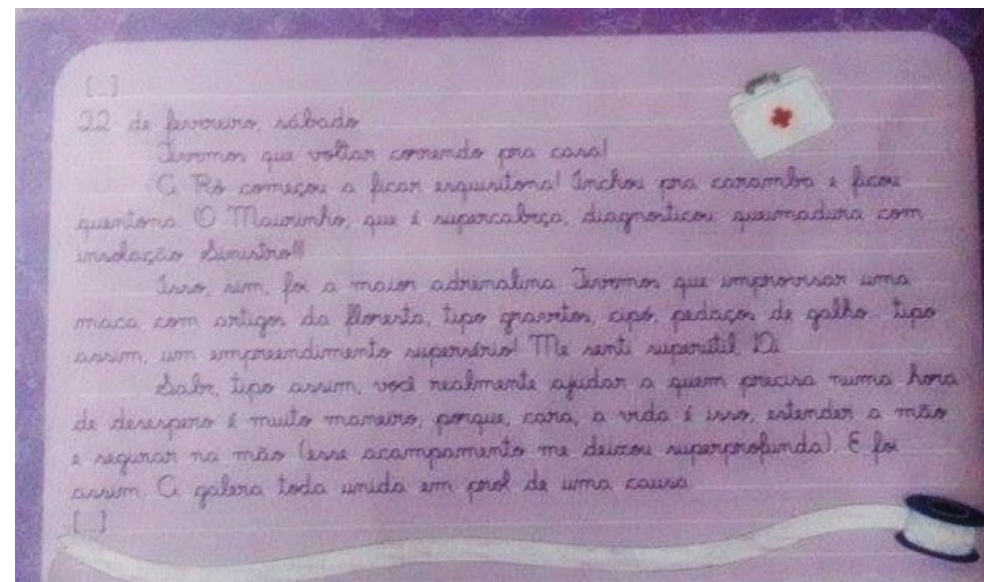 [...]
22 de fevereiro, sábado
Tivemos que voltar correndo pra casa!
A Rô começou a ficar esquisitona! Inchou pra caramba e ficou
quentona. O Maurinho, que é supercabeça, diagnosticou: queimadura com
insolação. Sinistro!!!
Isso, sim, foi a maior adrenalina. Tivemos que improvisar uma
maca com artigos da floresta, tipo gravetos, cipó, pedaços de galho... tipo
assim, um empreendimento supersério! Me senti superútil, Di.
Sabe, tipo assim, você realmente ajudar a quem precisa numa hora
de desespero é muito maneiro, porque, cara, a vida é isso, estender a mão
e segurar na mão (esse acampamento me deixou superprofunda). E foi
assim. A galera toda unida em prol de uma causa.
[...]